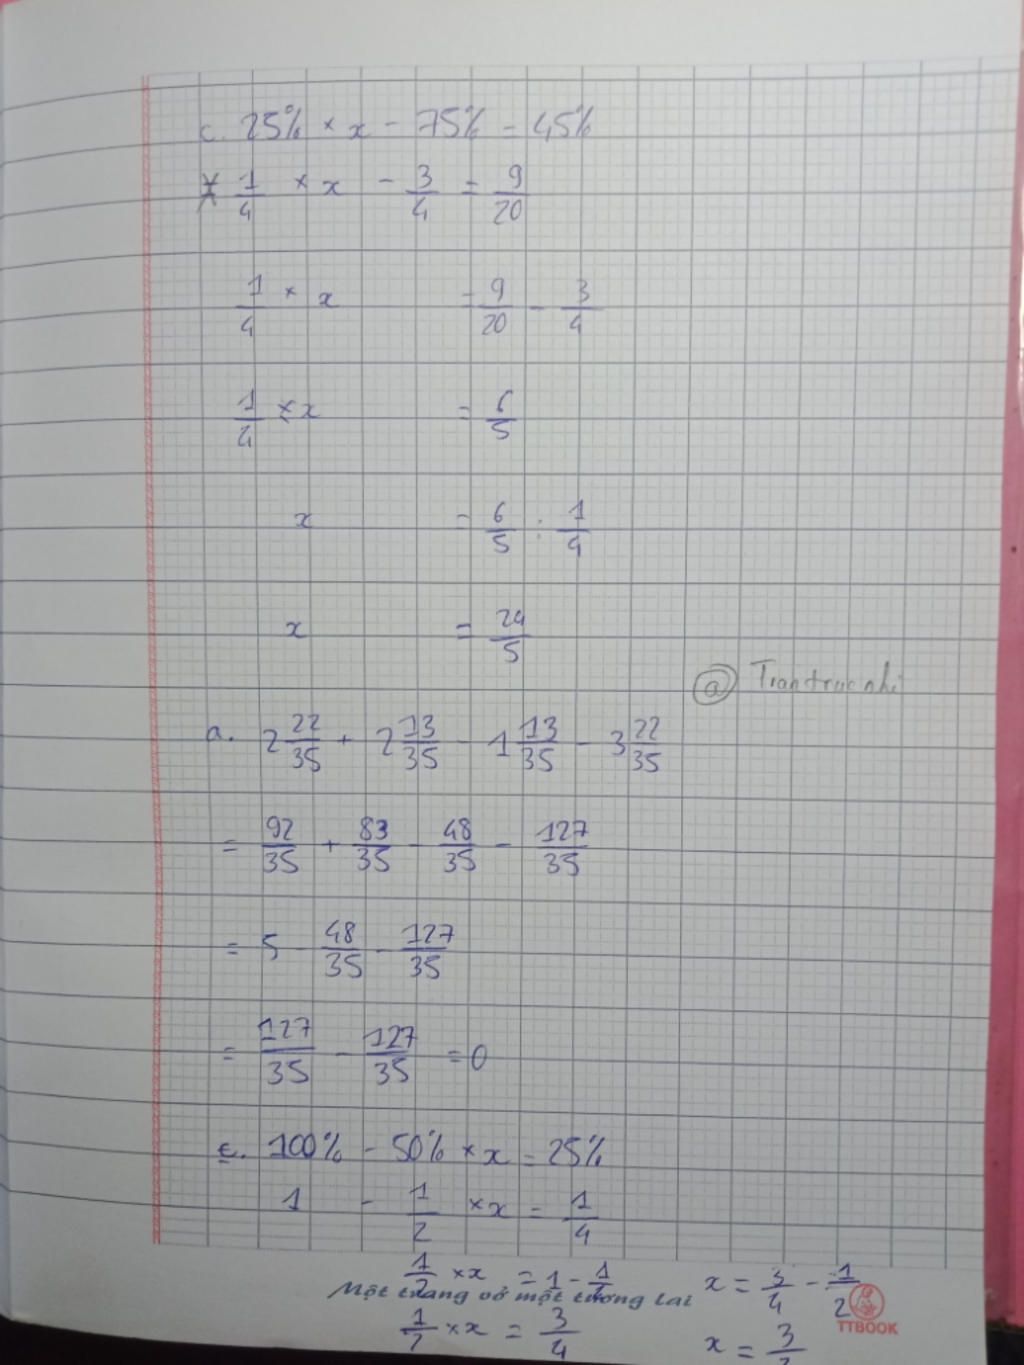 c. 25% × x - 75% = 45%
1/4 × x - 3/4 = 9/20
1/4 × x = 9/20 - 3/4
1/4 × x = 6/5
x = 6/5 : 1/4
x = 24/5
@ Trantrucnhi
a. 2 22/35 + 2 13/35 - 1 13/35 - 3 22/35
= 92/35 + 83/35 - 48/35 - 127/35
= 5 - 48/35 - 127/35
= 127/35 - 127/35 = 0
c. 100% - 50% × x = 25%
1 - 1/2 × x = 1/4
1/2 × x = 1 - 1/4
x = 3/4 - 1/2
Một trang vở một tương lai
TTBOOK
1/2 × x = 3/4
x = 3/